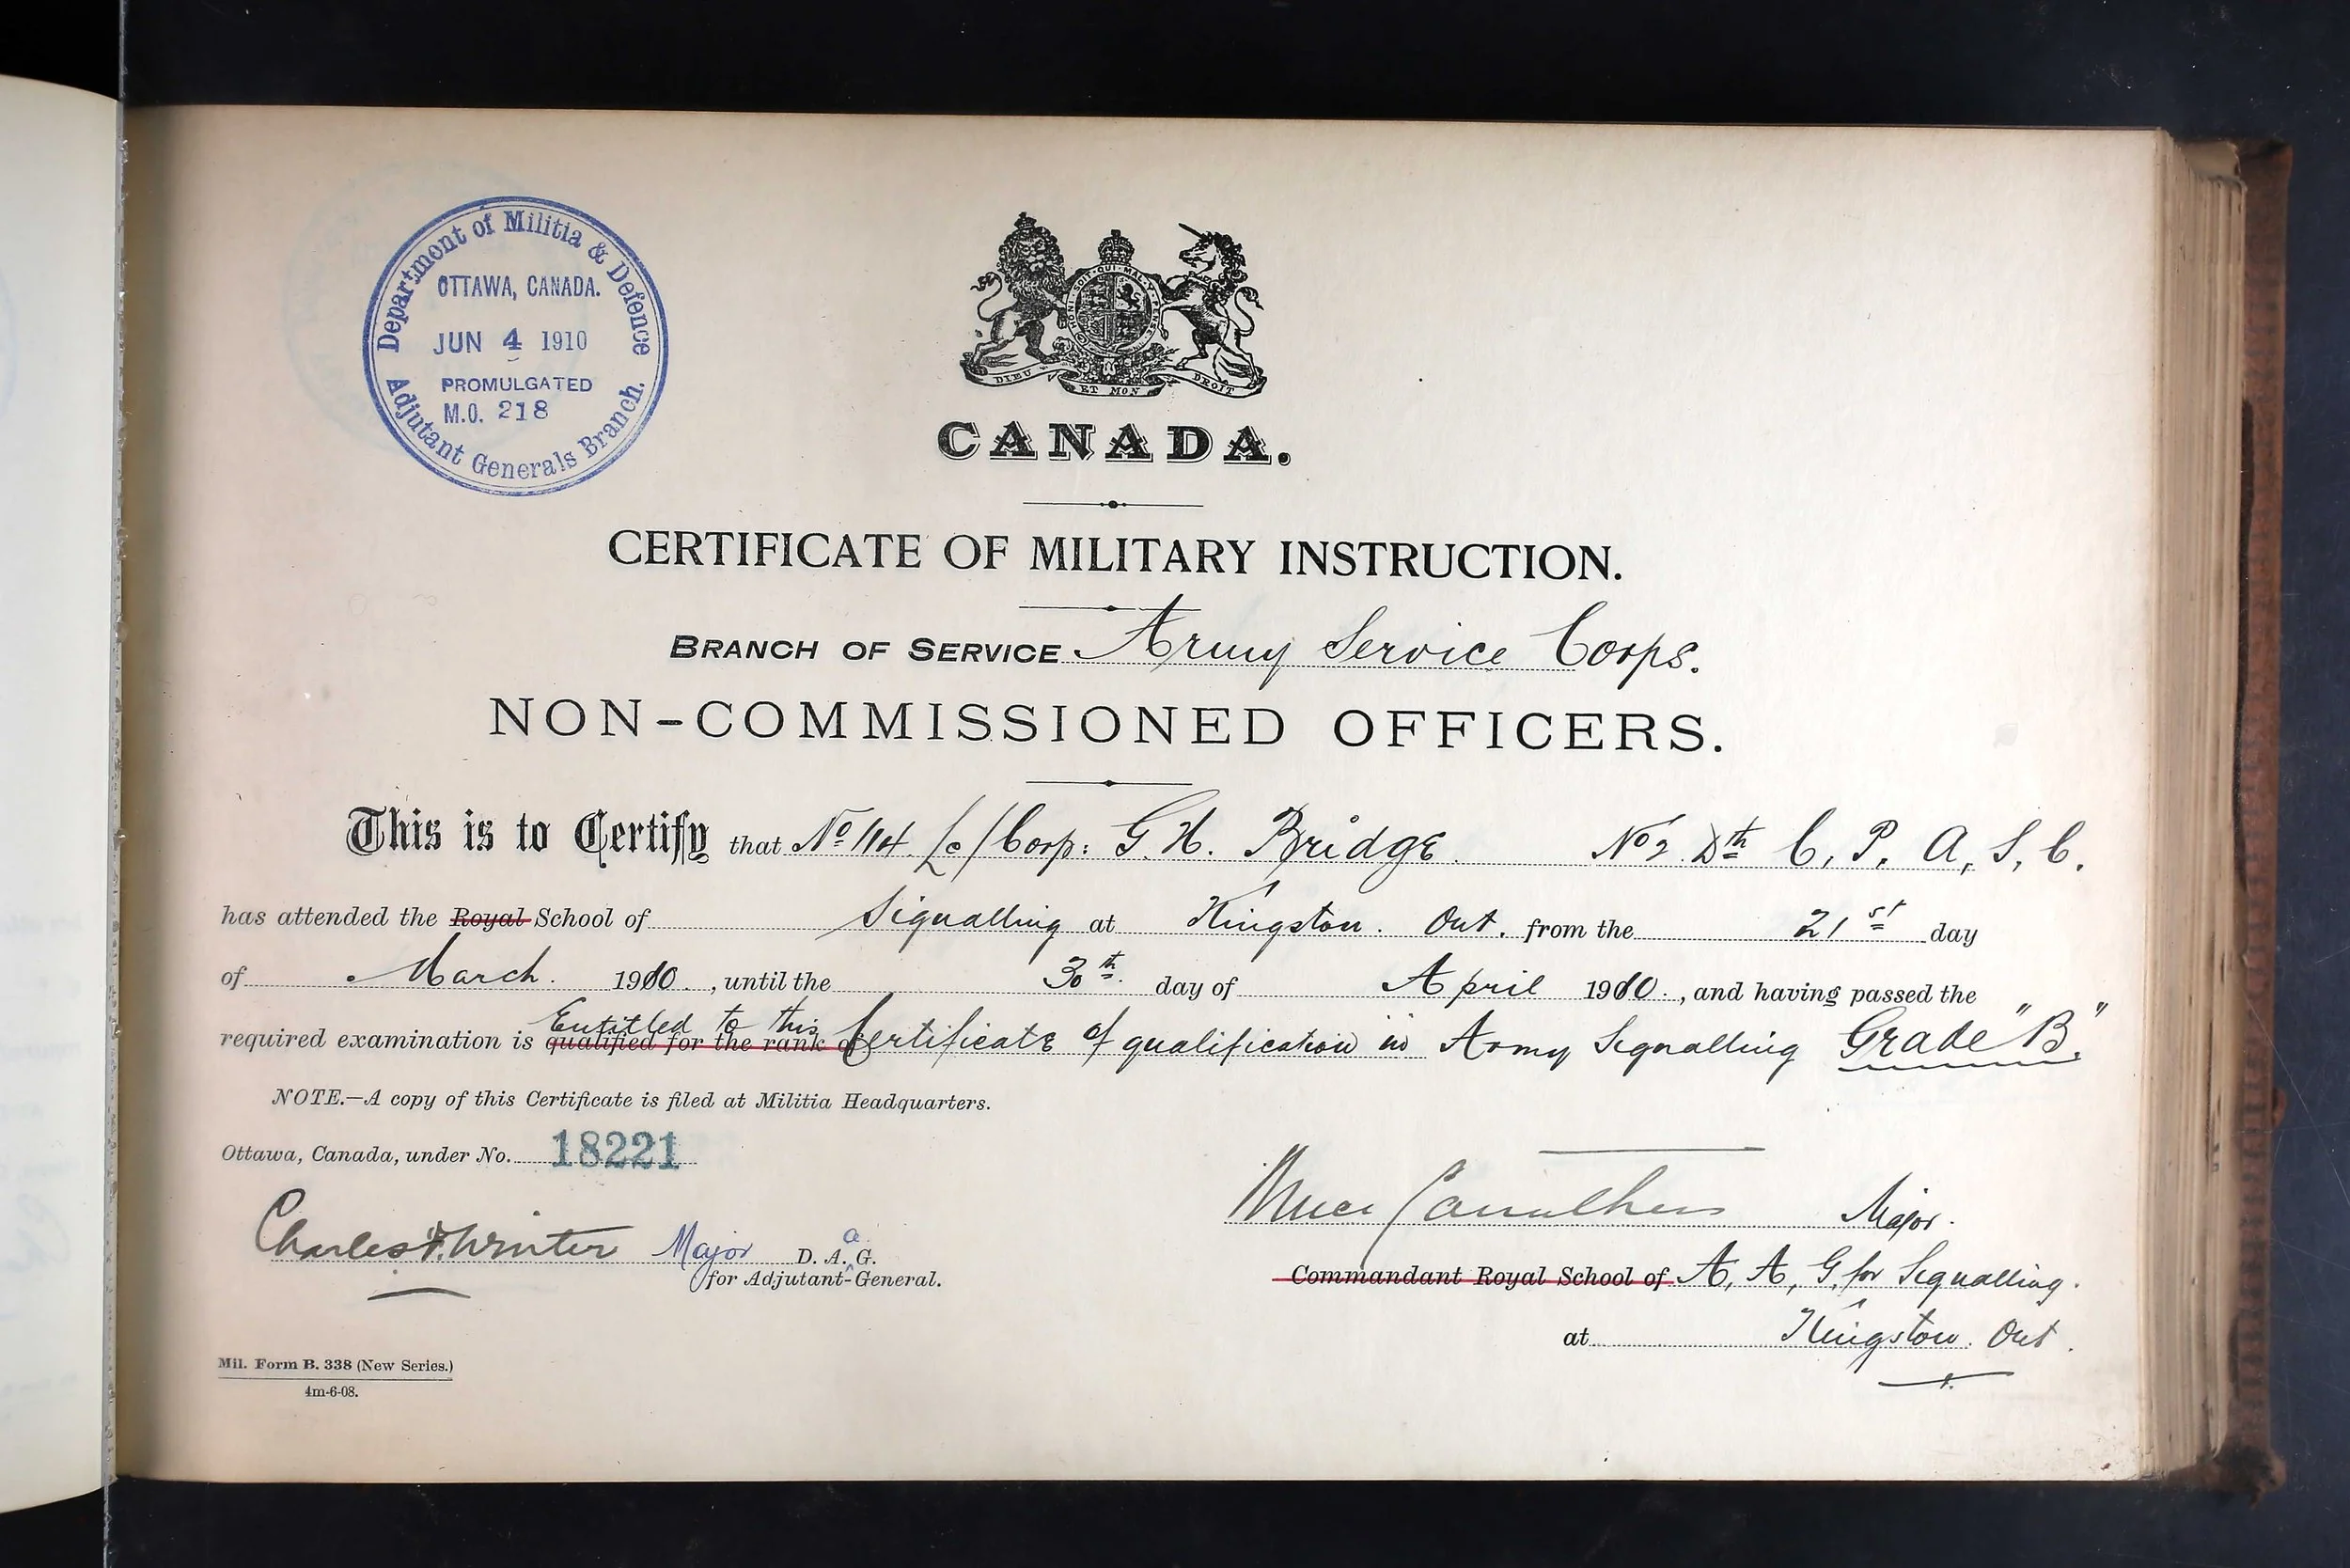 Department of Militia & Defence
OTTAWA, CANADA.
JUN 4 1910
PROMULGATED
M.O. 218
Adjutant Generals Branch.
HONI·SOIT·QUI·MAL·Y·PENSE
DIEU ET MON DROIT
CANADA.
CERTIFICATE OF MILITARY INSTRUCTION.
BRANCH OF SERVICE Army Service Corps.
NON-COMMISSIONED OFFICERS.
This is to Certify that No 114 L/Corp: G. H. Bridge No 2 Dth C. P. A. S. C.
has attended the Royal School of Signalling at Kingston. Ont. from the 21st day
of March. 1910, until the 30th day of April 1910, and having passed the
Entitled to this
required examination is qualified for the rank of Certificate of qualification in Army Signalling Grade "B".
NOTE.—A copy of this Certificate is filed at Militia Headquarters.
Ottawa, Canada, under No. 18221
Charles F. Winter Major D. A. a G.
for Adjutant-General.
Bruce Carruthers Major.
Commandant Royal School of A. A. G. for Signalling.
at Kingston. Ont.
Mil. Form B. 338 (New Series.)
4m-6-08.